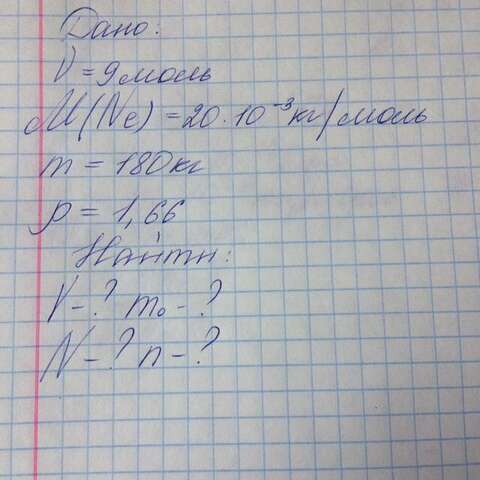 Дано:
ν = 9 моль
M(Ne) = 20 · 10⁻³ кг/моль
m = 180 кг
ρ = 1,66
Найти:
V - ? m₀ - ?
N - ? n - ?